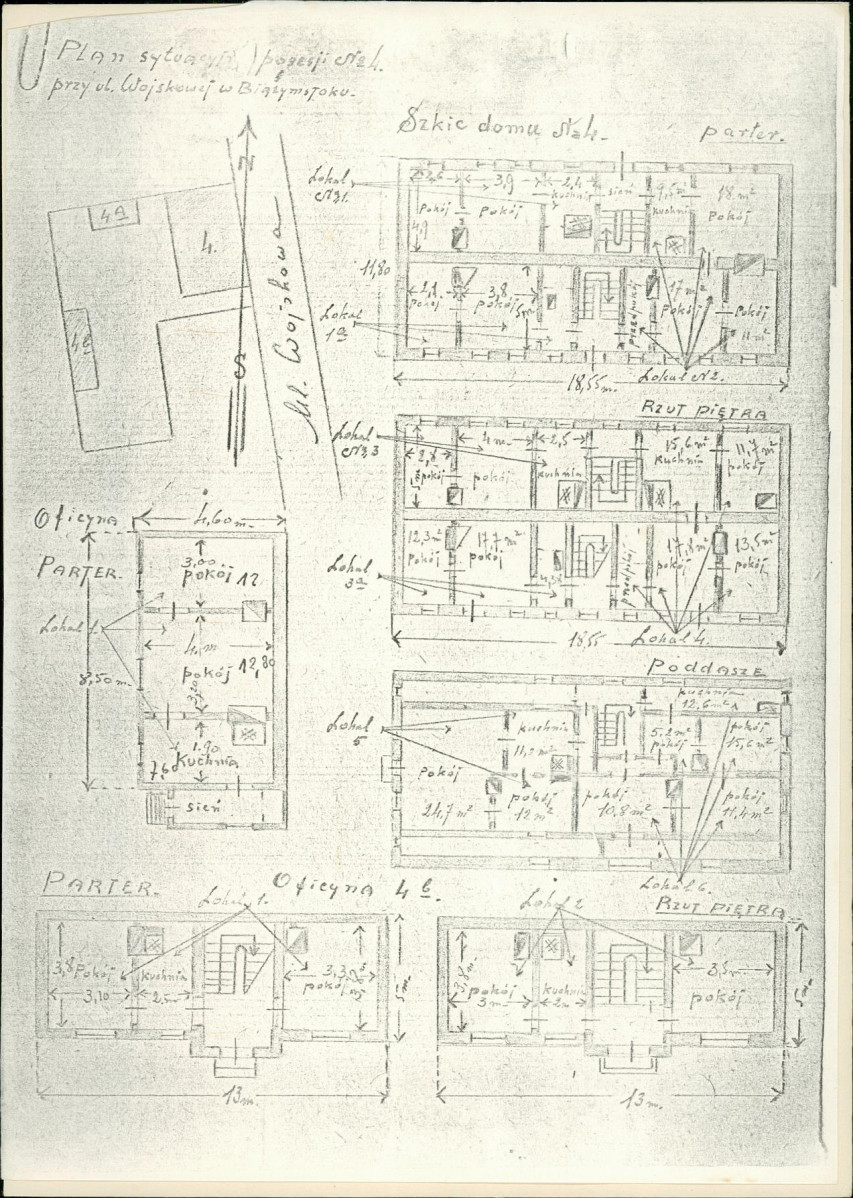 Plan sytuacyjny posesji № 4.
przy ul. Wojskowej w Białymstoku.
N
S
ul. Wojskowa
4a
4.
4b
Szkic domu № 4.
parter.
Lokal
№ 1.
2,6
3,9
2,4
kuchnia
sień
9,5 m²
kuchnia
18 m²
pokój
pokój
pokój
11,80
17 m²
pokój
3,8
pokój
pokój
przedpokój
pokój
11 m²
Lokal
1a
18,55 m.
Lokal № 2.
RZUT PIĘTRA
Lokal
№ 3
2,8
4 m
2,5
15,6 m²
kuchnia
11,7 m²
pokój
pokój
pokój
kuchnia
12,3 m²
pokój
17,7 m²
pokój
przedpokój
17,8 m²
pokój
13,5 m²
pokój
Lokal
3a
18,55
Lokal 4.
Poddasze
Lokal
5
kuchnia
12,6 m²
kuchnia
5,2 m²
pokój
pokój
15,6 m²
pokój
24,7 m²
pokój
12 m²
pokój
10,8 m²
pokój
11,4 m²
Lokal 6.
Oficyna
4,60 m.
PARTER.
3,00
pokój 12
Lokal 1.
4, m
pokój 12,80
3,20
8,50 m.
1.90
Kuchnia
7,60
sień
PARTER.
Oficyna 4 b.
Lokal 1.
3,8
pokój
kuchnia
3,10
2, m
3,3
pokój
5 m.
13 m.
Lokal 2
RZUT PIĘTRA
3,8 m
pokój
3 m
kuchnia
2 m
3,5 m
pokój
5 m.
13 m.